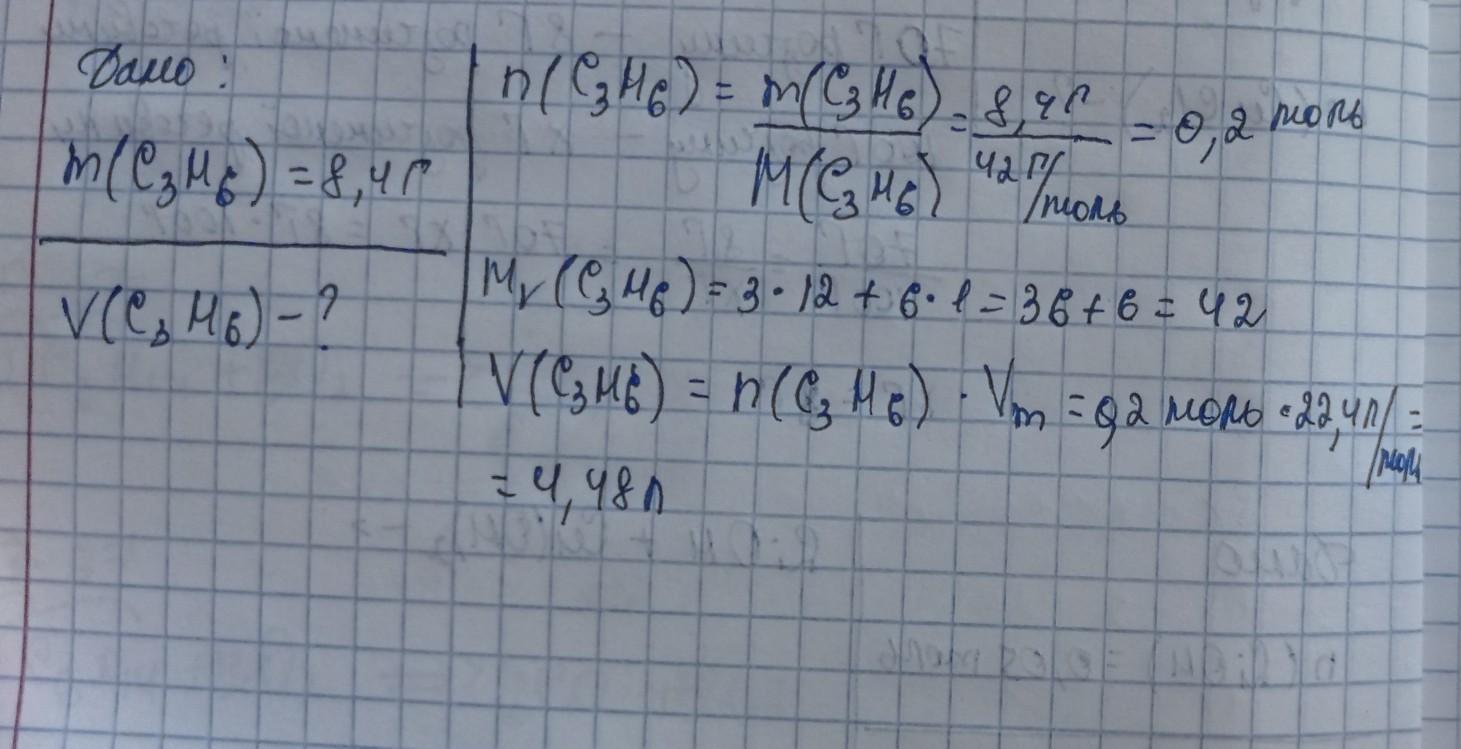 Дано:
m(C₃H₆) = 8,4г
V(C₃H₆) - ?
n(C₃H₆) = m(C₃H₆)/M(C₃H₆) = 8,4г/42г/моль = 0,2 моль
Mr(C₃H₆) = 3·12 + 6·1 = 36 + 6 = 42
V(C₃H₆) = n(C₃H₆) · Vm = 0,2 моль · 22,4л/моль =
= 4,48л